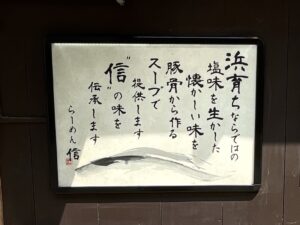 浜育ちならではの
塩味を生かした
懐かしい味を
豚骨から作る
スープで
提供します
“信”の味を
伝承します
らーめん 信